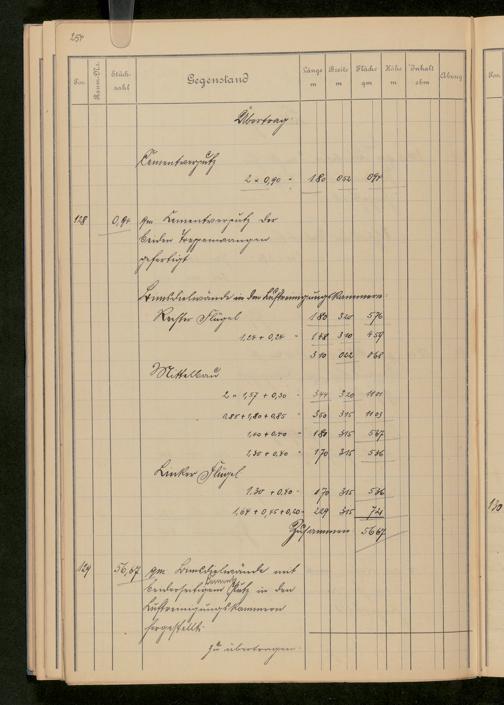 254
Pos. Raum-Nr. Stück-zahl Gegenstand Länge m Breite m Fläche qm Höhe m Inhalt cbm Abzug
Übertrag
Cementverputz
2 × 0,90 = 1 80 0 52 0 94
128 0,94 qm Cementverputz der
beiden Treppenwangen
gefertigt
Bimsdielwände in den Luftreinigungskammern
Rechter Flügel 1 80 3 20 5 76
1,24 + 0,24 = 1 48 3 10 4 59
3 10 0 22 0 68
Mittelbau
2 × 1,57 + 0,30 = 3 44 3 20 11 01
0,85 + 1,80 + 0,85 = 3 50 3 15 11 03
1,40 + 0,40 = 1 80 3 15 5 67
1,30 + 0,40 = 1 70 3 15 5 36
Linker Flügel
1,30 + 0,40 = 1 70 3 15 5 36
1,64 + 0,45 + 0,20 = 2 29 3 15 7 21
Zusammen 56 67
129 56,67 qm Bimsdielwände mit
beiderseitigem Putz in den
Luftreinigungskammern
hergestellt.
Zu übertragen
Pos.
130